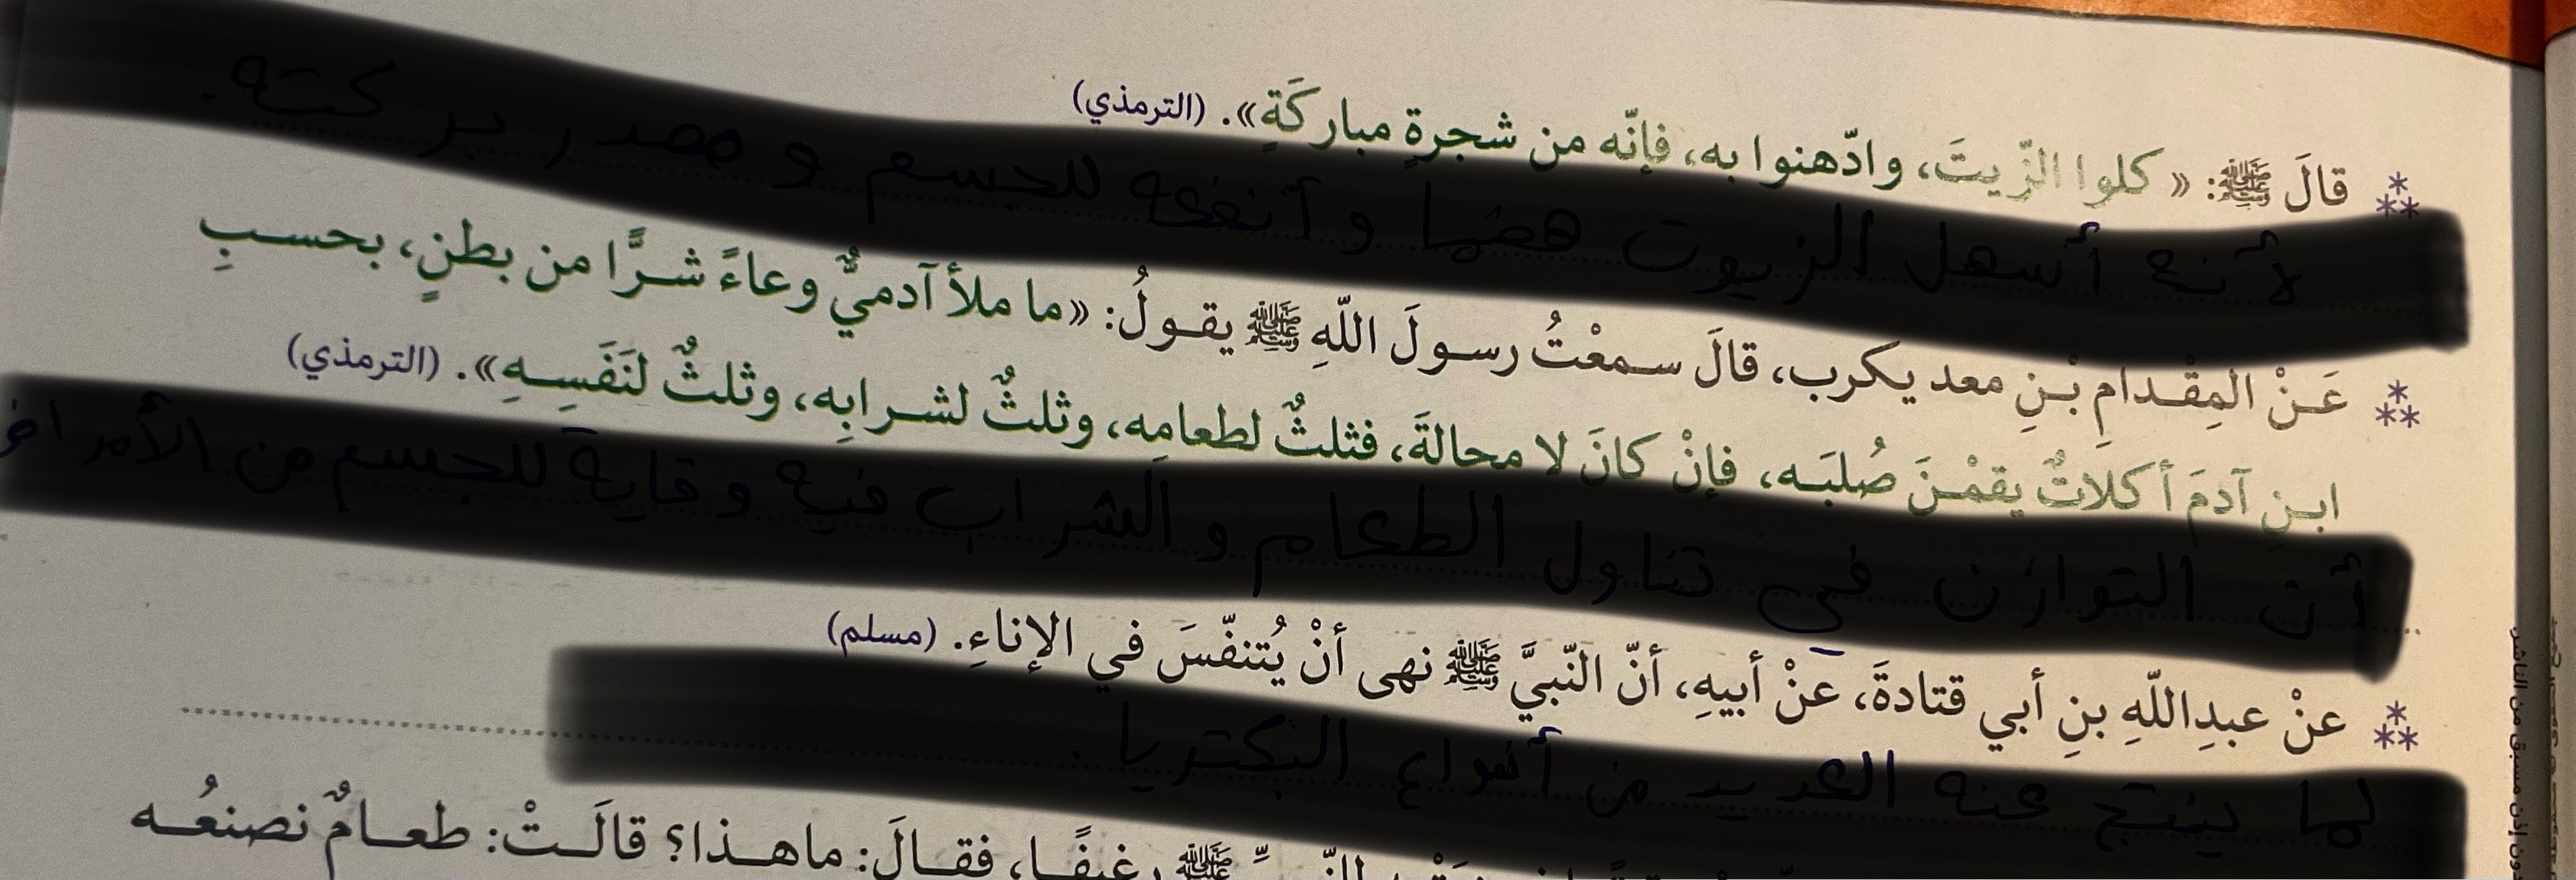 قالَ ﷺ: « كلوا الزّيتَ، وادّهنوا به، فإنّه من شجرةٍ مباركَةٍ». (الترمذي)
لأنه أسهل الزيوت هضما و أنفعه للجسم و مصدر بركته.
عَـنْ المِقْـدامِ بْـنِ معد يكرب، قالَ سـمعْتُ رسـولَ اللّهِ ﷺ يقـولُ: «ما ملأ آدميٌّ وعاءً شـرًّا من بطنٍ، بحسـبِ
ابـنِ آدمَ أكلاتٌ يقمْـنَ صُلبَـه، فإنْ كانَ لا محالةَ، فثلثٌ لطعامِه، وثلثٌ لشـرابِه، وثلثٌ لنَفَسِـهِ». (الترمذي)
أن التوازن في تناول الطعام و الشراب فيه وقاية للجسم من
عنْ عبدِاللّهِ بنِ أبي قتادةَ، عنْ أبيهِ، أنّ النّبيَّ ﷺ نهى أنْ يُتنفّسَ في الإناءِ. (مسلم)
لما ينتج عنه العديد من أنواع البكتريا.
ﷺ رغيفًـا، فقـالَ: ماهـذا؟ قالَـتْ: طعـامٌ نصنعُـه